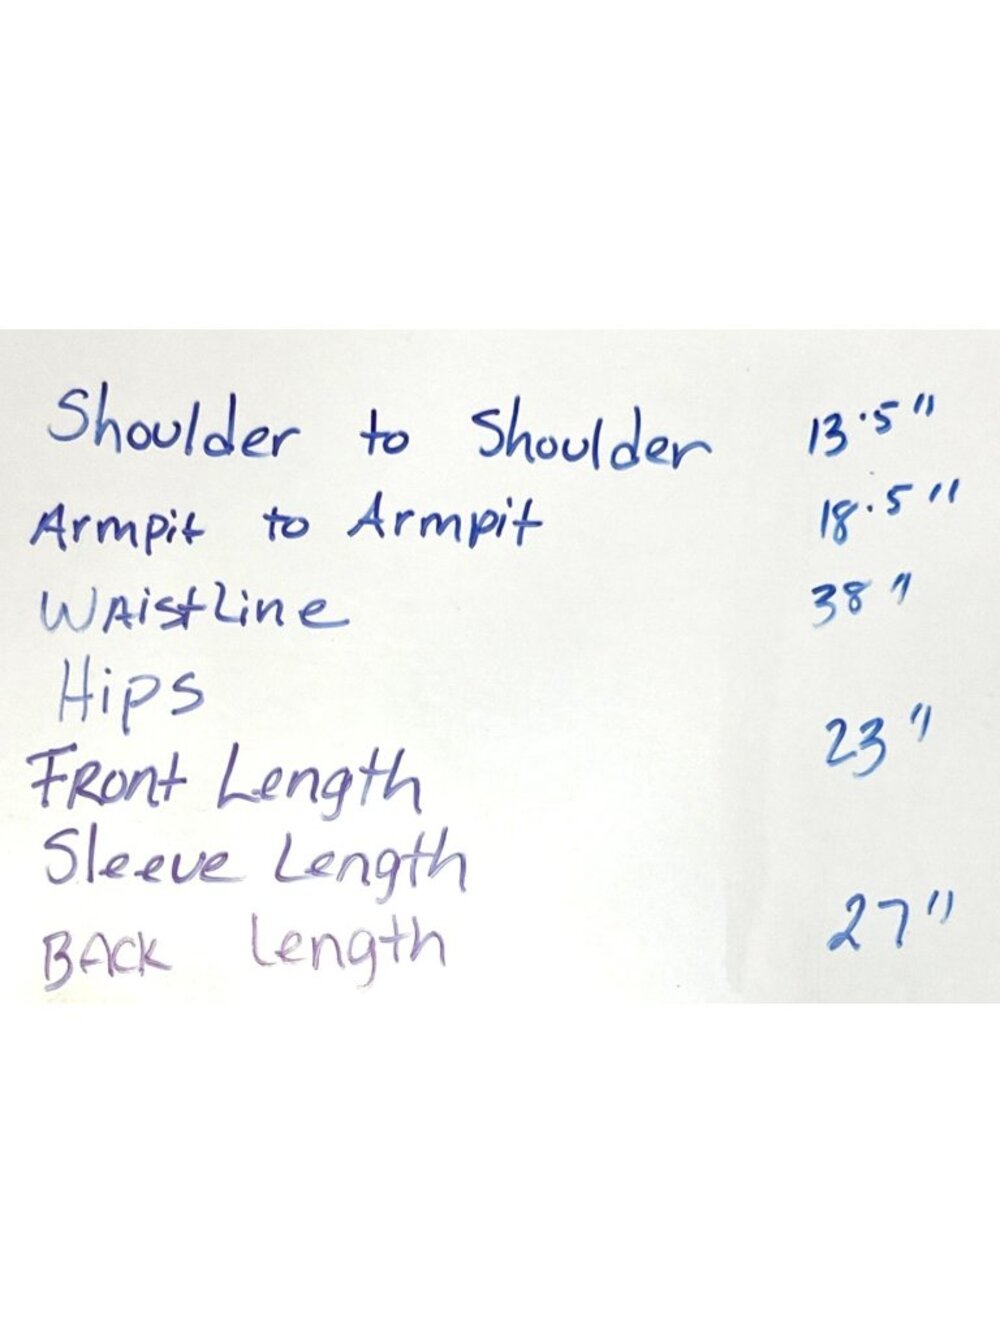 Shoulder to Shoulder 13.5"
Armpit to Armpit 18.5"
Waistline 38"
Hips
Front Length 23"
Sleeve Length
BACK Length 27"